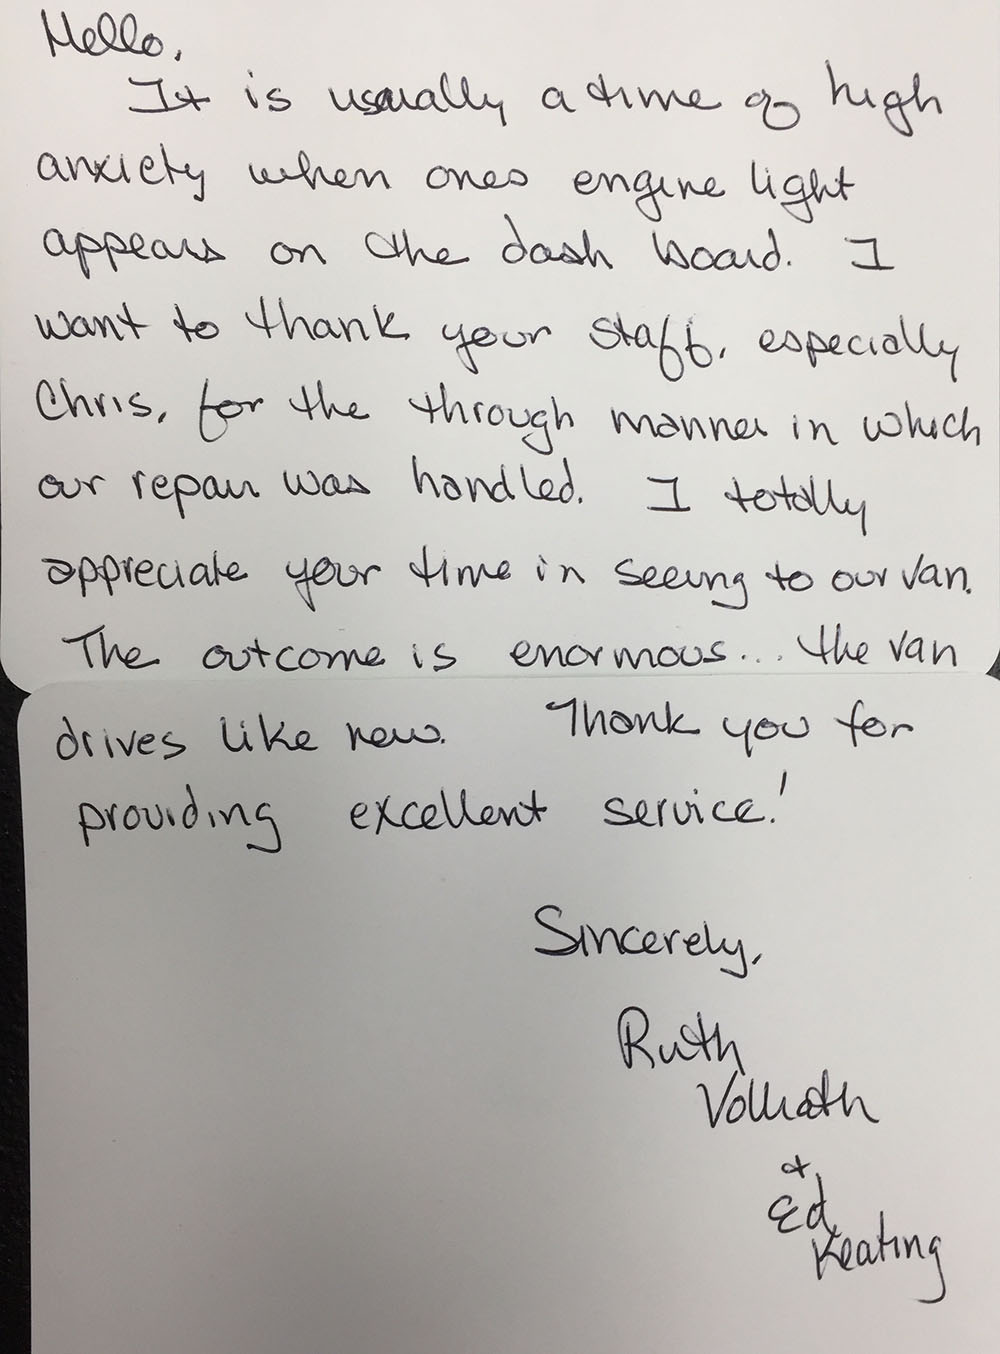 Hello,
It is usually a time of high
anxiety when ones engine light
appears on the dash board. I
want to thank your staff, especially
Chris, for the through manner in which
our repair was handled. I totally
appreciate your time in seeing to our van.
The outcome is enormous... the van
drives like new. Thank you for
providing excellent service!
Sincerely,
Ruth
Vollrath
+
Ed
Keating